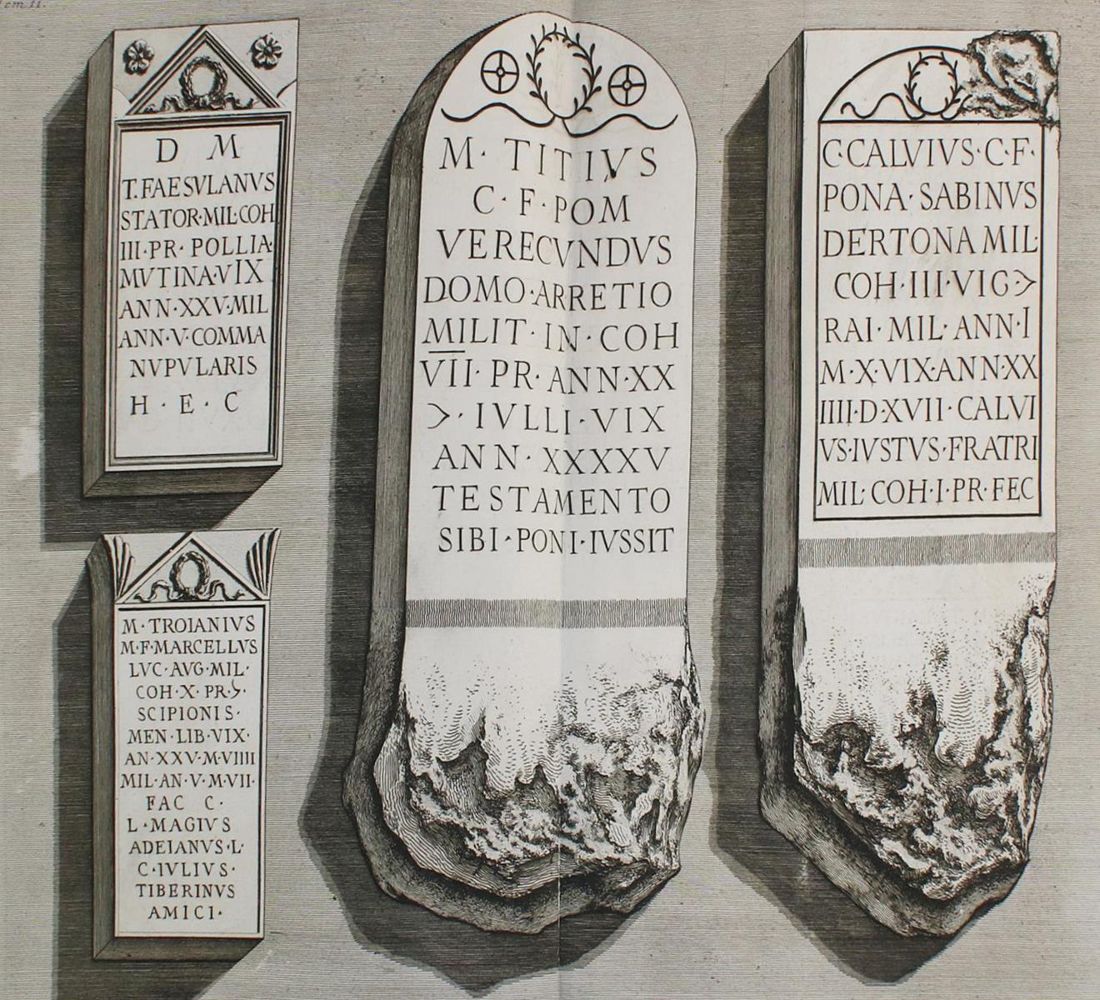 D M
T.FAESVLANVS
STATOR·MIL·COH
III·PR·POLLIA·
MVTINA·VIX
ANN·XXV·MIL
ANN·V·COMMA
NVPVLARIS
H·E·C
M·TROIANIVS
M·F·MARCELLVS
LVC·AVG·MIL·
COH·X·PR·Ϡ·
SCIPIONIS·
MEN·LIB·VIX·
AN·XXV·M·VIIII
MIL·AN·V·M·VII·
FAC C·
L·MAGIVS
ADEIANVS·L·
C·IVLIVS·
TIBERINVS
AMICI·
M·TITIVS
C·F·POM
VERECVNDVS
DOMO·ARRETIO
MILIT·IN·COH
V̅I̅I̅·PR·ANN·XX
Ͻ·IVLLI·VIX
ANN·XXXXV
TESTAMENTO
SIBI·PONI·IVSSIT
C·CALVIVS·C·F·
PONA·SABINVS
DERTONA MIL·
COH·III·VIG Ͻ
RAI·MIL·ANN·I
M·X·VIX·ANN·XX
IIII·D·XVII·CALVI
VS·IVSTVS·FRATRI
MIL·COH·I·PR·FEC